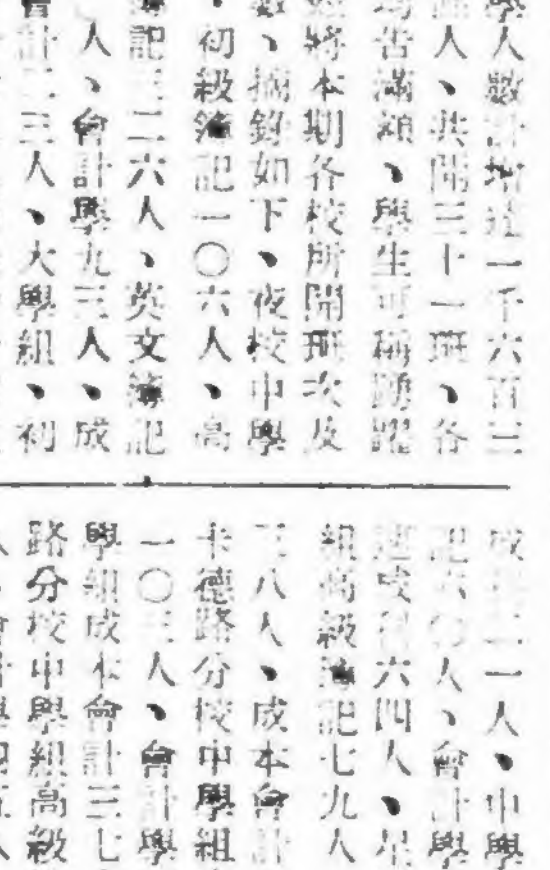 學人數計增達一千六百三
人、共開三十一班、各
均告滿額、學生可稱踴躍
將本期各校所開班次及
數、摘錄如下、夜校中學
、初級簿記一〇六人、高
簿記三二六人、英文簿記
人、會計學九三人、成
會計二三人、大學組、初
成 二一人、中學
記六〇人、會計學
速成科六四人、星
組高級簿記七九人
三八人、成本會計
卡德路分校中學組
一〇三人、會計學
學組成本會計三七
路分校中學組高級
人、會計學四五人